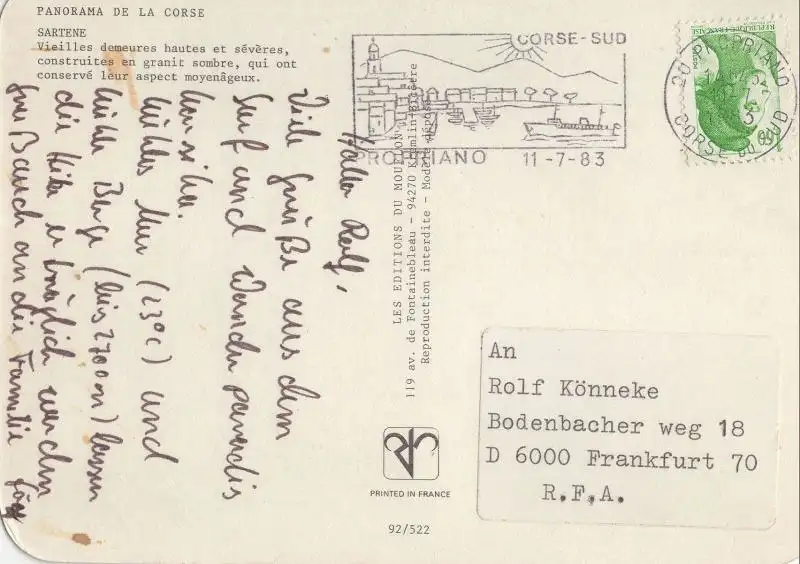 PANORAMA DE LA CORSE
SARTENE
Vieilles demeures hautes et sévères,
construites en granit sombre, qui ont
conservé leur aspect moyenâgeux.
Hallo Rolf,
Viele Grüße aus dem
Surf und Wander paradis
Korsika.
Kühles Meer (23°C) und
kühle Berge (bis 2700m) lassen
die Hitze erträglich werden
Gruß auch an die Familie Jörg
LES EDITIONS DU MOUFLON
119 av. de Fontainebleau - 94270 Kremlin-Bicêtre
Reproduction interdite - Modèle déposé
PRINTED IN FRANCE
92/522
CORSE-SUD
PROPRIANO 11-7-83
20 PROPRIANO
CORSE DU SUD
REPUBLIQUE FRANÇAISE
An
Rolf Könneke
Bodenbacher weg 18
D 6000 Frankfurt 70
R.F.A.